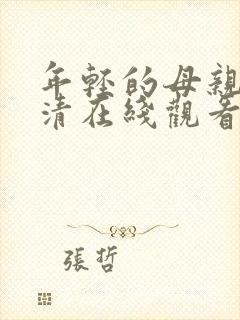 年轻的母親
清在綫觀看
張哲